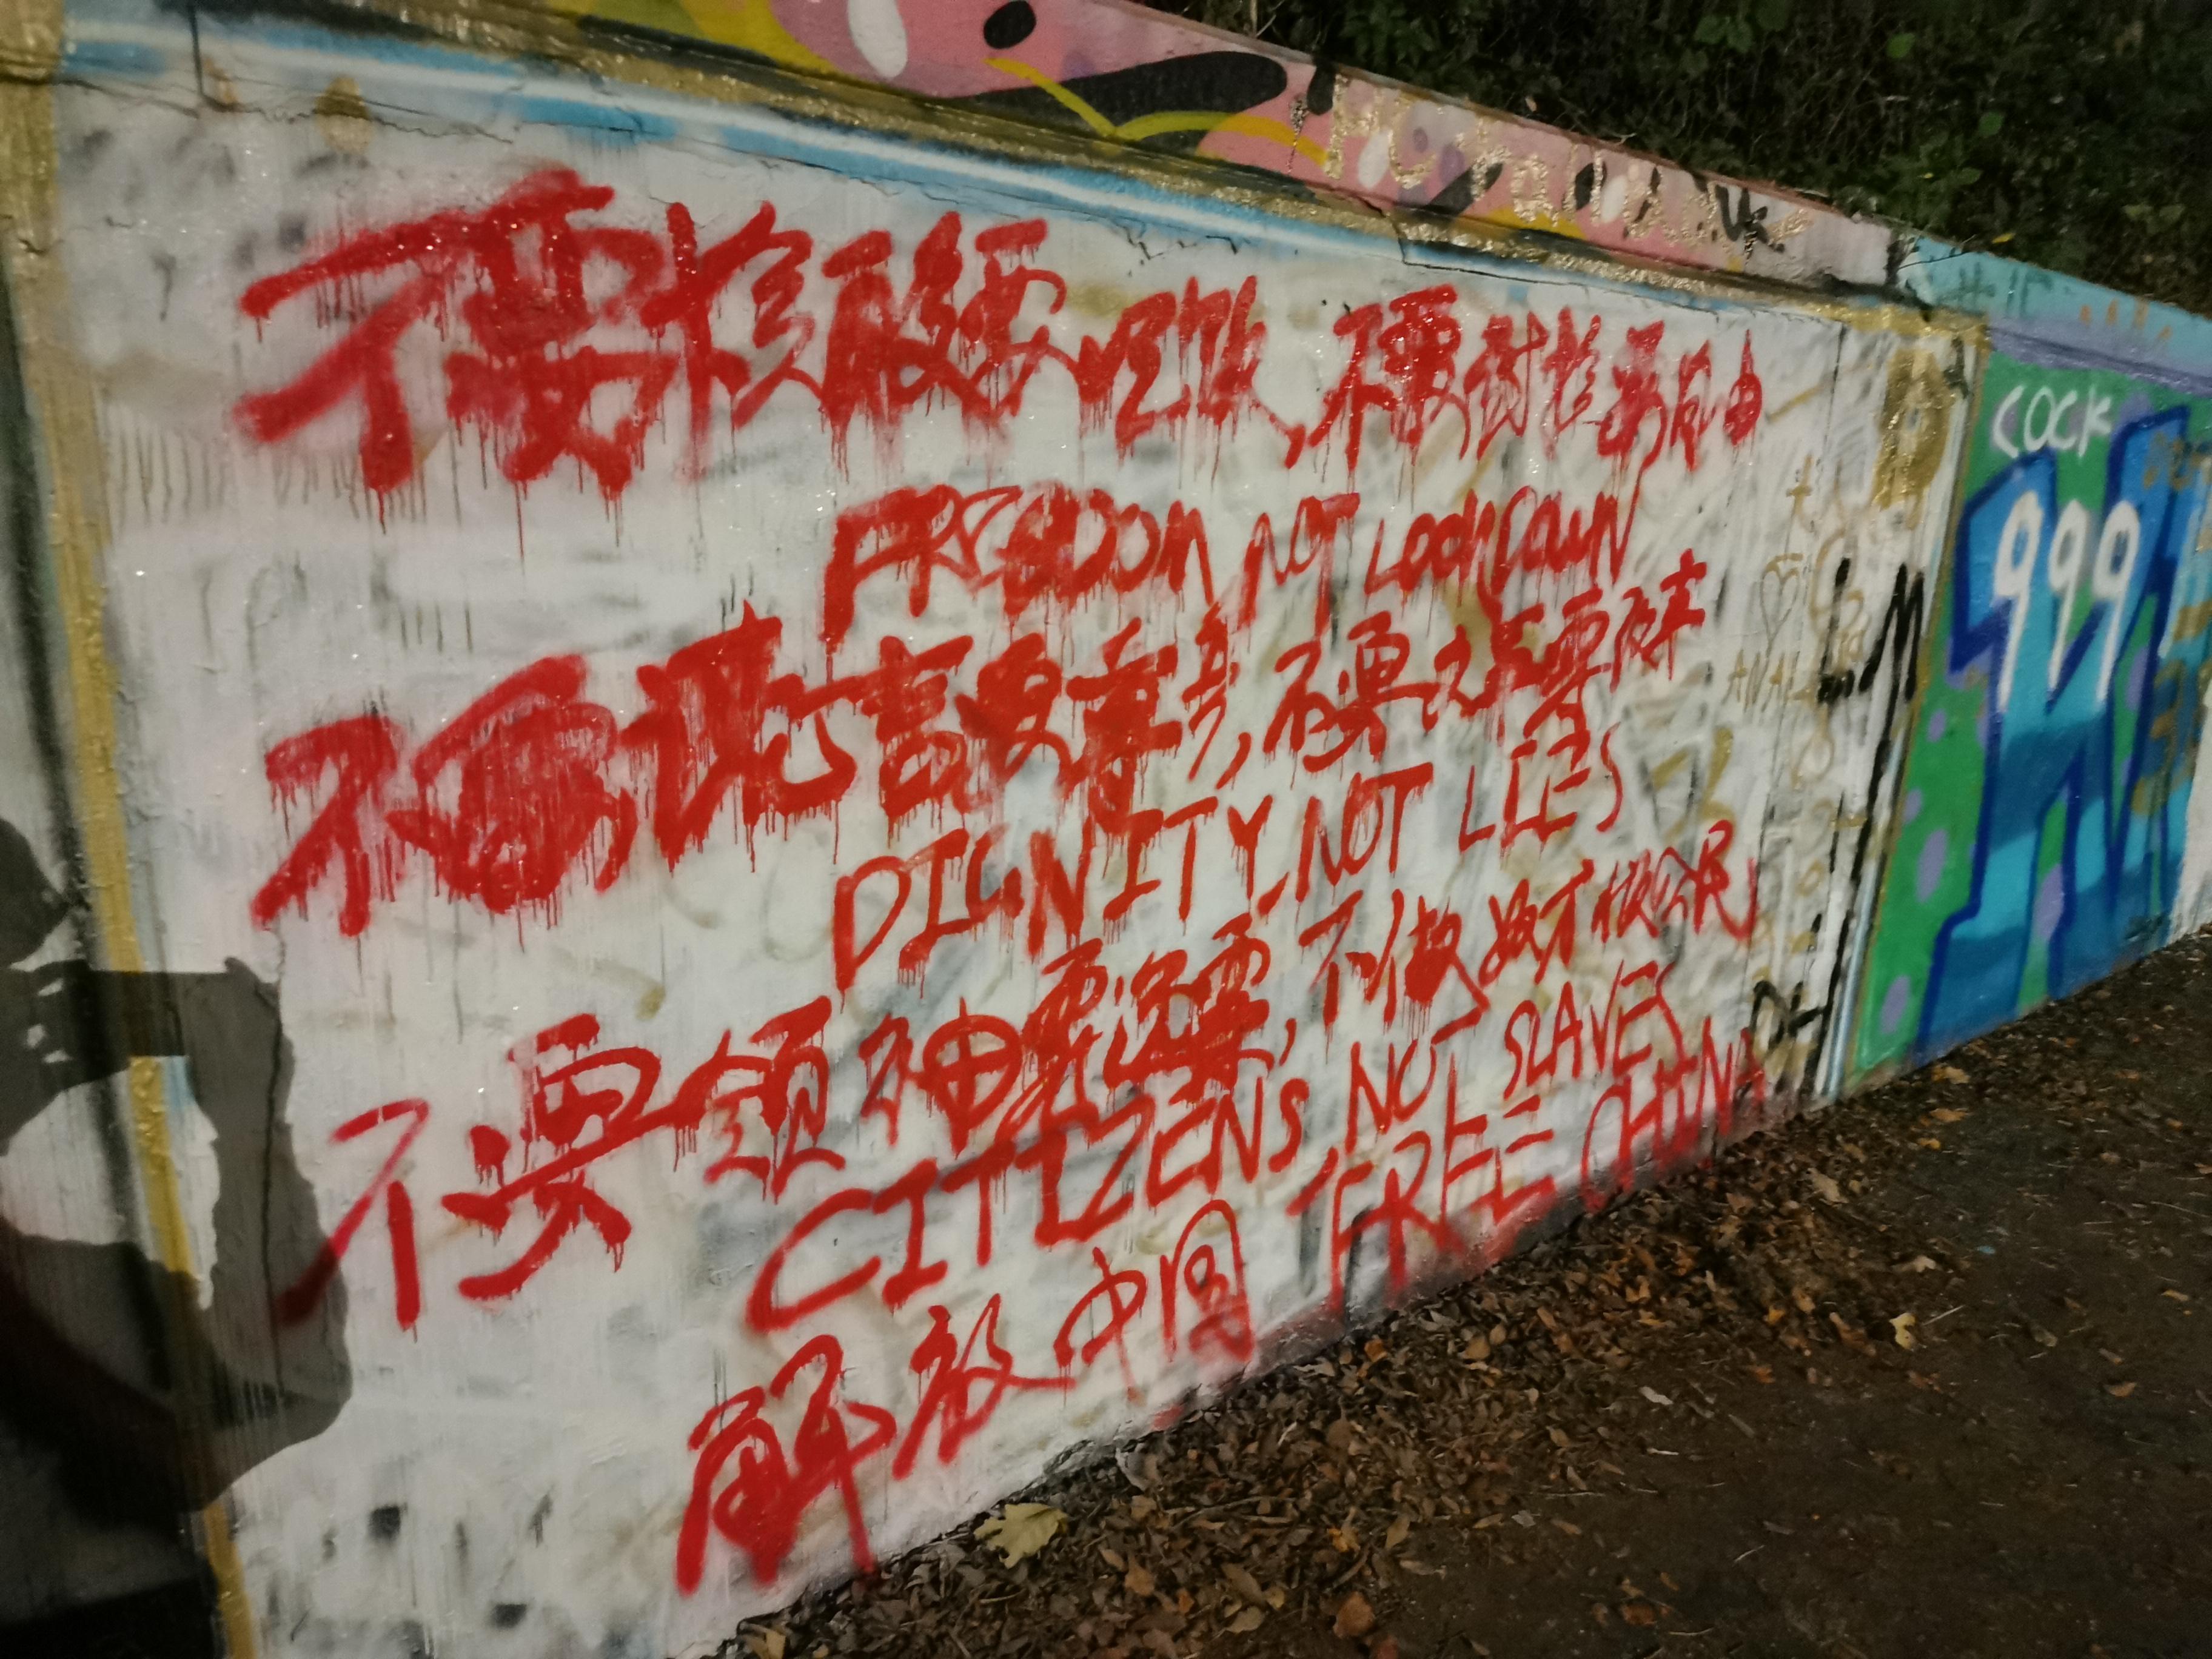 不要核酸要吃饭,不要封控要自由
FREEDOM NOT LOCKDOWN
不要谎言要尊严,不要文革要改革
DIGNITY, NOT LIES
不要领袖要选票,不做奴才做公民
CITIZENS NOT SLAVES
解放中国 FREE CHINA
COCK
999